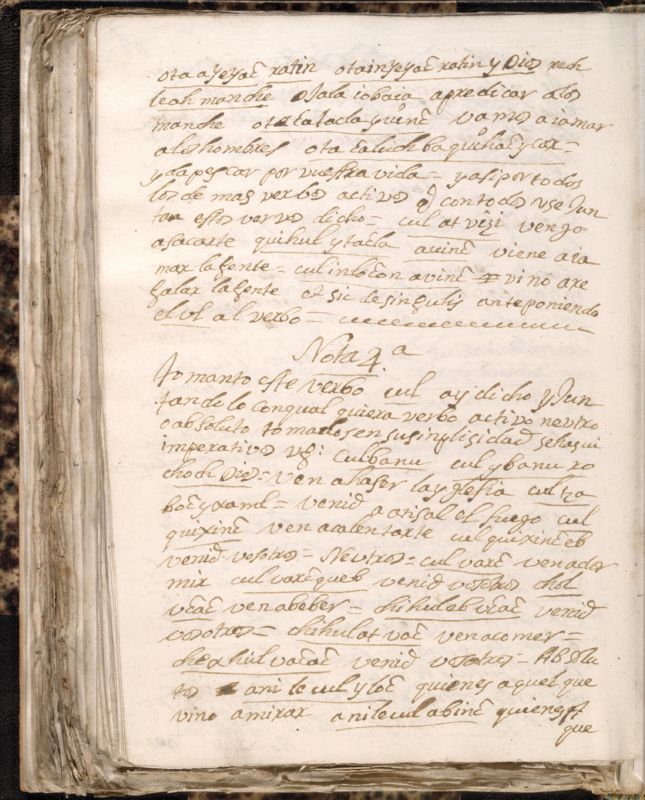 ota ayeyac ratin otainyeyac ratin y Dios rech
leah manche ojala iobaia a predicar a los
manche ota catacla quinc vamos a iamar
a los hombres ota caluch ba quihac y car=
y da pescar por vuestra vida= y asi por todos
los de mas verbos activos q con todos use Jun
tan estos vervos dicho= cul at visi vengo
a sacarte quihul y tacla auinc viene a ia
mar la gente= cul inlocon avinc vino a re
galar la gente et sic de singulis anteponiendo
el vl al verbo=
Nota 4ª
tomanto este verbo cul ay dicho y Jun
tandolo con qual quiera verbo activo neutro
o absoluto tomados en su simplisidad se hasen
imperativos vg: Culbanu cul y banu ro
choch Dios= ven a haser la yglesia cul tza
boc y xaml= venid a atisal el fuego cul
quixinc ven acalentarte cul quixinc eb
venid vosotros= Neutros= cul varc ven a dor
mir cul varc queb venid vosotros chol
vcac ven a beber= chihuleb vcac venid
vosotros= chihulat vac ven a comer=
chexhul vacac venid vosotros= Absolu
tos ani te cul y loc quienes aquel que
vino a mirar ani te cul abinc quienes
que